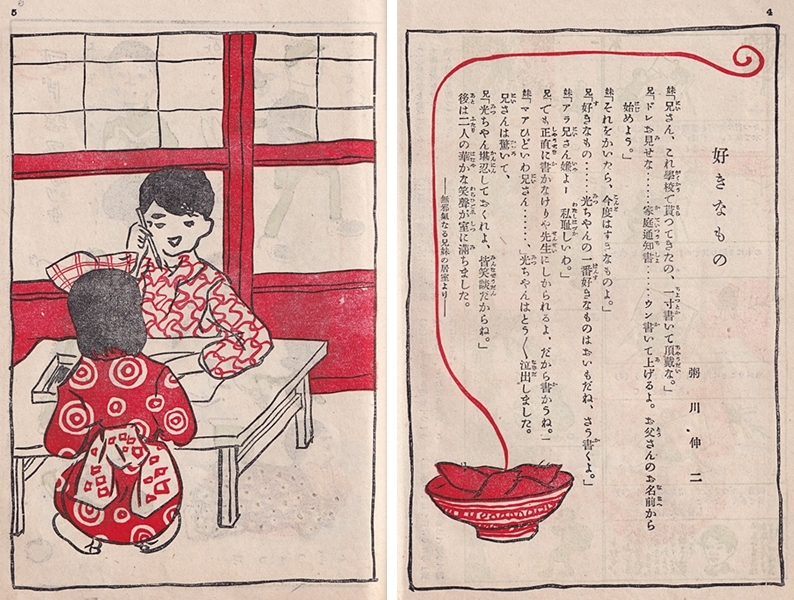 4
好きなもの
粥川伸二
妹「兄さん、これ學校で貰つてきたの、一寸書いて頂戴な。」
兄「ドレお見せな……家庭通知書……ウン書いて上げるよ。お父さんのお名前から
始めよう。」
妹「それをかいたら、今度はすきなものよ。」
兄「好きなもの……光ちやんの一番好きなものはおいもだね、さう書くよ。」
妹「アラ兄さん嫌よー 私耻しいわ。」
兄「でも正直に書かなけりや先生にしかられるよ、だから書かうね。」
妹「マアひどいわ兄さん……、」光ちやんはとう〳〵泣出しました。
兄さんは驚いて、
兄「光ちやん堪忍しておくれよ、皆笑談だからね。」
後は二人の華かな笑聲が室に滿ちました。
——無邪氣なる兄妹の居室より——
5